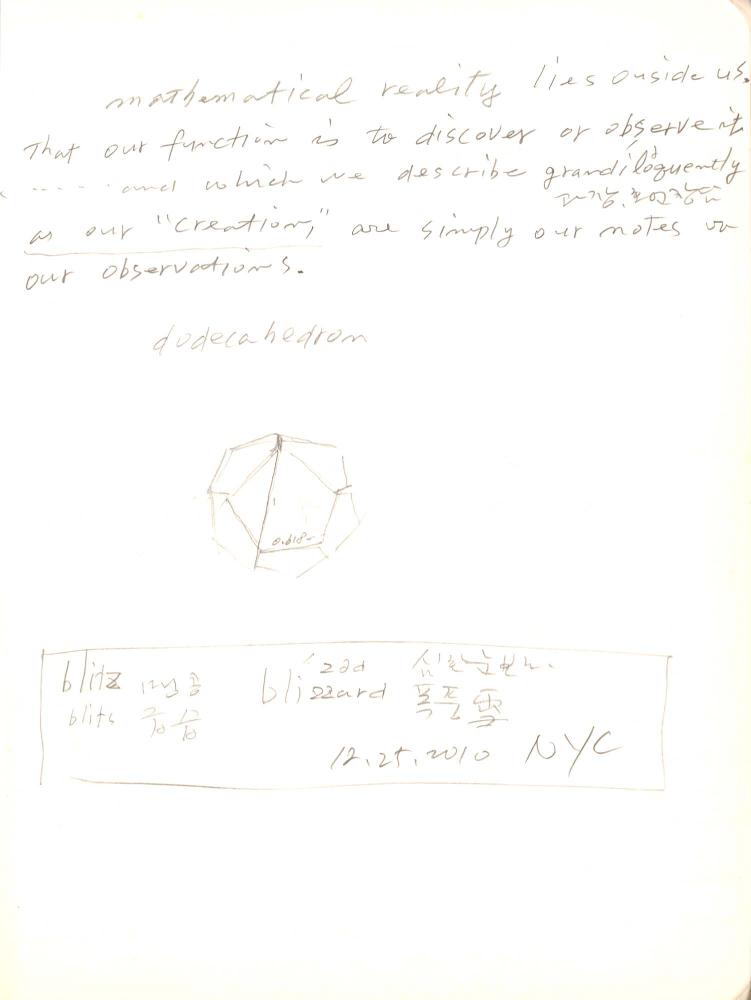 mathematical reality lies ouside us.
That our function is to discover or observe it
..... and which we describe grandiloquently
as our "creation," are simply our notes on
our observations.
dodecahedron
1
0.618
blitz
blizzard
blits
폭풍
12.25.2010 NYC